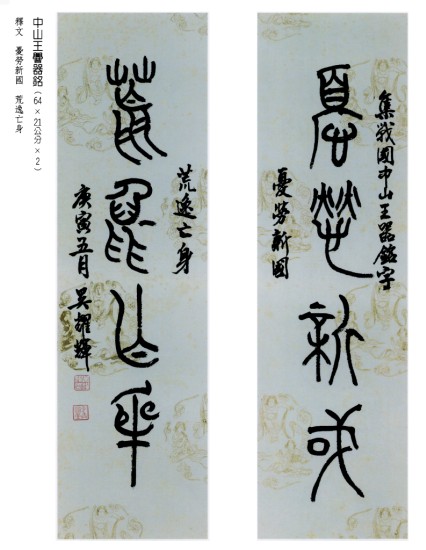 集戰國中山王器銘字
憂勞新國
憂勞新國
荒逸亡身
荒逸亡身
庚寅五月 吳耀輝
中山王疊器銘（64×21公分×2）
釋文 憂勞新國 荒逸亡身